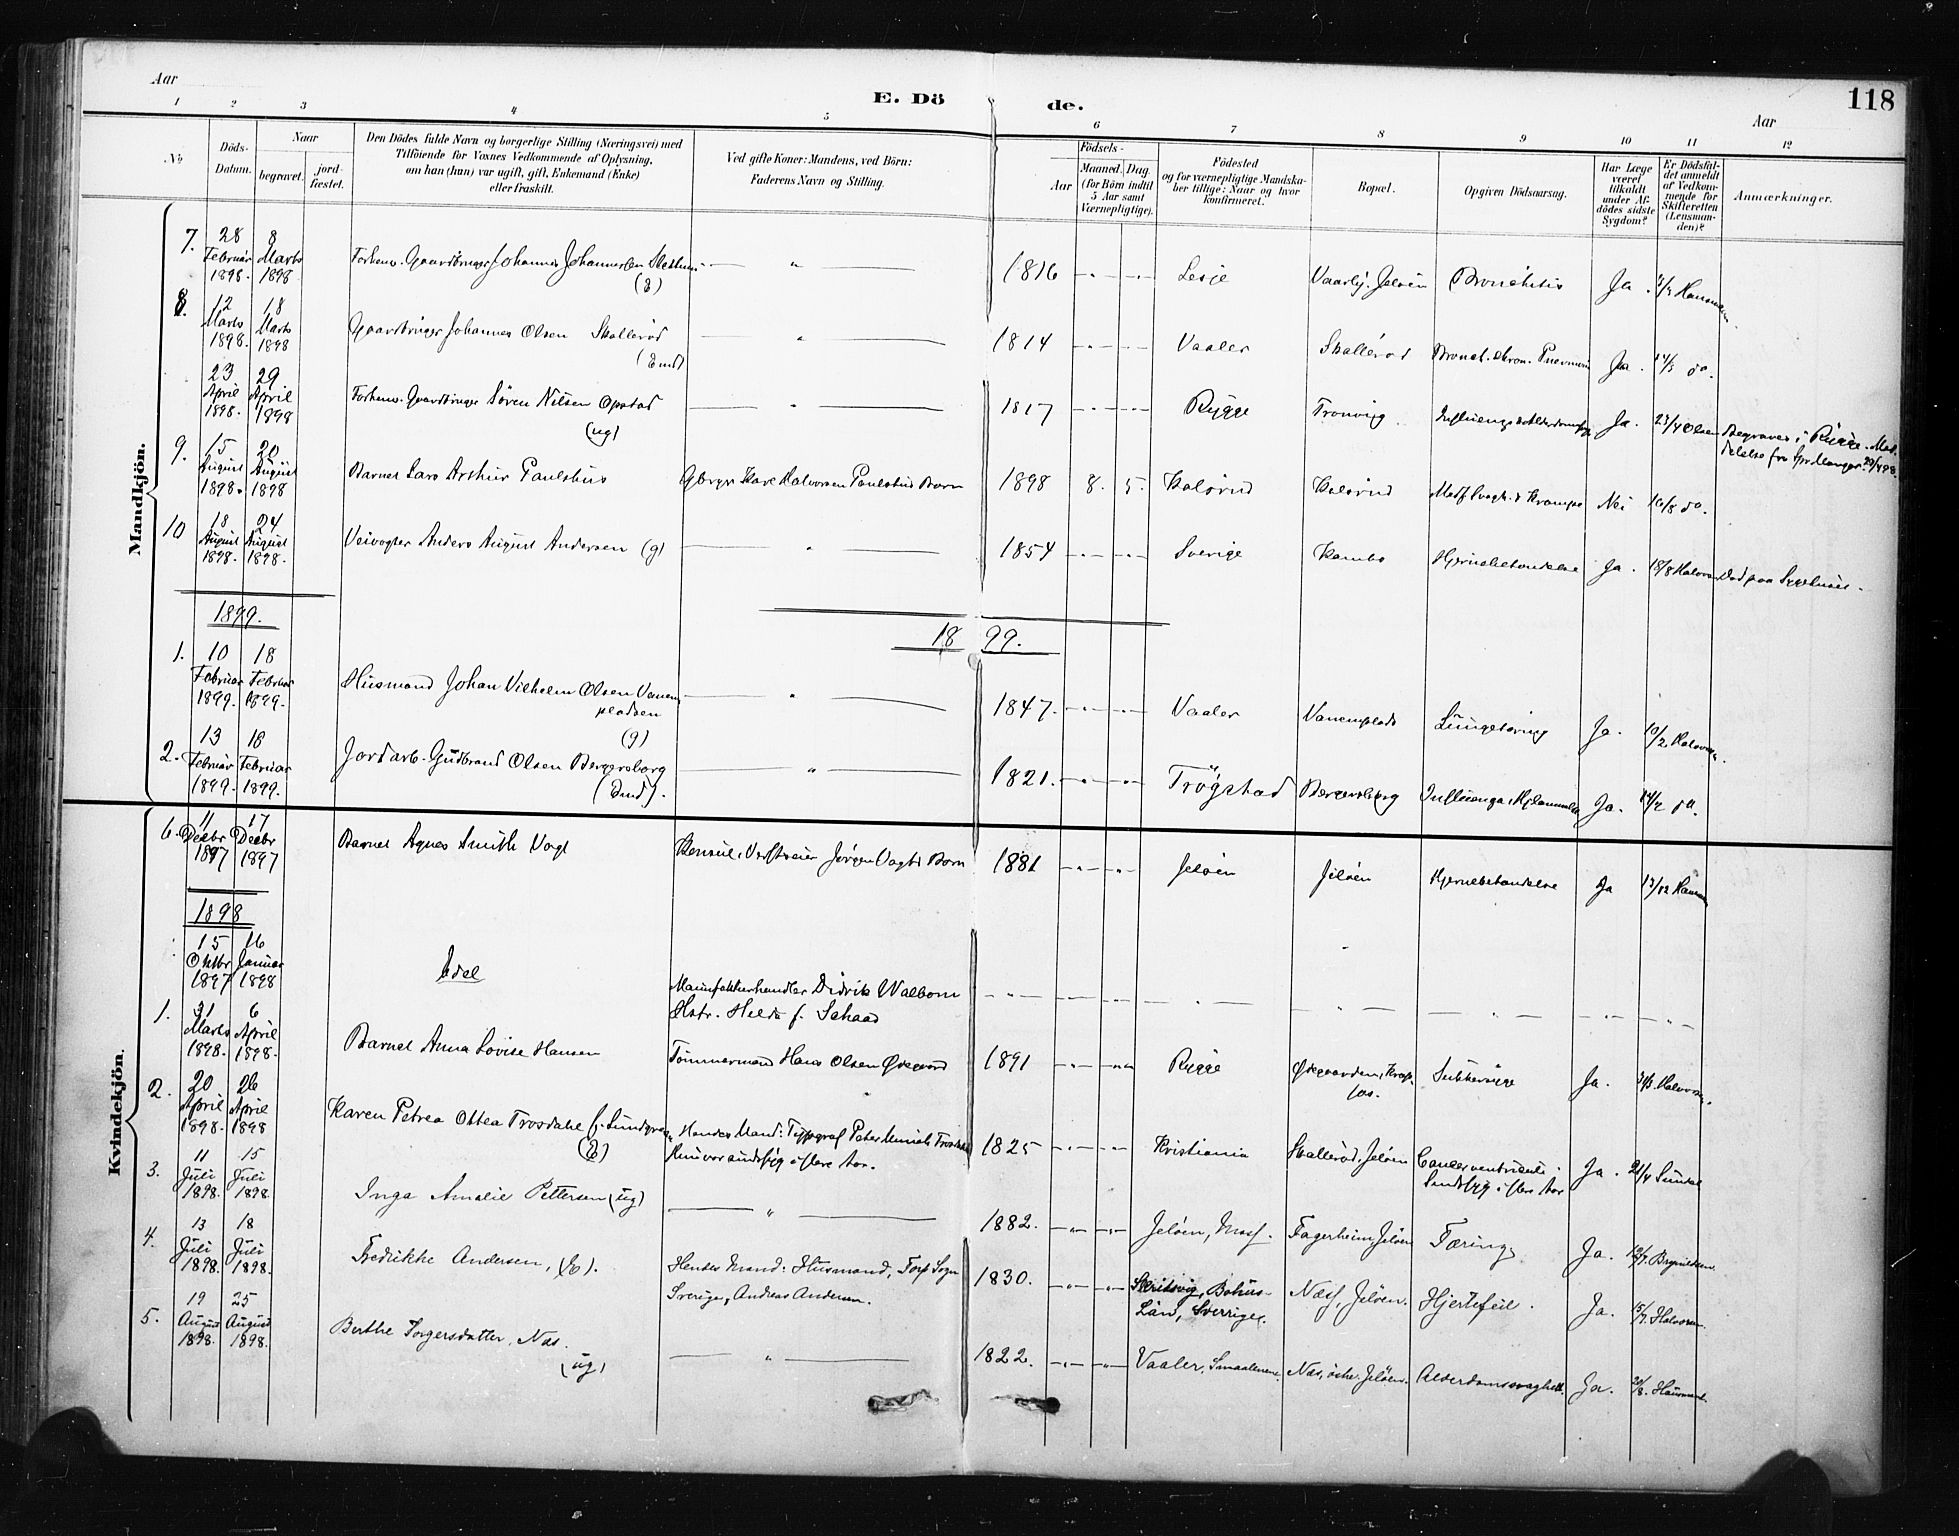 118
Aar
E. Dö de.
Aar
1 2 3 4 5 6 7 8 9 10 11 12
No
Döds-
Datum.
Naar
begravet.
jord-
fæstet.
Den Dödes fulde Navn og borgerlige Stilling (Næringsvei) med
Tilföiende for Voxnes Vedkommende af Oplysning,
om han (hun) var ugift, gift, Enkemand (Enke)
eller fraskilt.
Ved gifte Koner: Mandens, ved Börn:
Faderens Navn og Stilling.
Födsels-
Aar
Maaned. Dag.
(for Börn indtil
5 Aar samt
Værnepligtige).
Födested
og for værnepligtige Mandska-
ber tillige: Naar og hvor
konfirmeret.
Bopæl.
Opgiven Dödsaarsag.
Har Læge
været
tilkaldt
under Af-
dödes sidste
Sygdom?
Er Dödsfal-
det anmeldt
af Vedkom-
mende for
Skifteretten
(Lensman-
den)?
Anmærkninger.
Mandkjön.
7. 28 Februar 1898. 8 Marts 1898 Forhenv. Gaardbruger Johannes Johannesen
(E)
1816 Lesje Vaarli, Jeløen Bronchitis Ja.
8. 12 Marts 1898. 18 Marts 1898 Gaardbruger Johannes Olsen Skallerød
(Emd)
1814 Vaaler Skallerød Bronch. chron. Pneumoni Ja. 14/3 do.
23 April 1898. 29 April 1898 Forhenv. Gaardbruger Søren Nilsen Opstad
(ug)
1817 Rygge Tronvig Ja. 23/4 Olsen Begraves i Rygge. Med-
delelse fra
9. 15 August 1898. 20 August 1898 Barnet Lars Arthur Paulshus Gbrgr Kare Halvorsen Paulshus Barn 1898 8. 5. Kalsrud Kalsrud Medf. Svagh. & Krampe Nei 16/8 do.
10 18 August 1898. 24 August 1898. Veivogter Anders August Andersen (g) 1854 Sverige Kambo Hjernebetændelse Ja. 18/8 Halvorsen Død paa Sygehuset.
1899.
18 99.
1. 10 Februar 1899. 18 Februar 1899. Husmand Johan Vilhelm Olsen Vanem-
pladsen
(g)
1847. Vaaler Vanemplads Lungetæring Ja. 10/2 Halvorsen.
2. 13 Februar 1899. 18 Februar 1899. Jordarb. Gudbrand Olsen Bergersborg
(Emd).
1821. Trögstad Bergersborg Influenza, Ja. 14/2 do.
Kvindekjön.
6. 11 Decbr 1897 17 Decbr 1897 Barnet Agnes Smith Vogt Konsul, Verftseier Jørgen Vogts Barn 1881 Jeløen Jeløen Hjernebetændelse Ja 13/12
1898
15 Oktbr 1897 16 Januar 1898 Edel Manufakturhandler Didrik Walbom
Hstr. Hilda f. Schaad
1. 31 Marts 1898. 6 April 1898. Barnet Anna Lovise Hansen Tømmermand Hans Olsen Ødegaard 1891 Rygge Ødegaarden, Krap-
fos.
Sukkersyge Ja. Halvorsen.
2. 20 April 1898. 26 April 1898 Karen Petrea Ottea Trosdahl f. Lundgreen
(E)
Hendes Mand: Typograf Peter Trosdahl
Hun var sindssyg i flere Aar.
1825 Kristiania Skallerød, Jeløen Cancer ventriculi.
Sindssyg i flere Aar
Ja. 21/4
3. 11 Juli 1898. 15 Juli 1898. Inga Amalie Pettersen (ug) 1882. Jeløen, Moss. Fagerheim, Jeløen Tæring Ja. 12/7. Brynildsen.
4. 13 Juli 1898. 18 Juli 1898. Fredrikke Andersen, (E). Hendes Mand: Husmand, Fors Sogn
Sverige, Andreas Andersen.
1830. Bohus-
Län, Sverrige.
Næs, Jeløen. Hjertefeil. Ja. 15/7. Halvorsen.
5. 19 August 1898. 25 August 1898. Berthe Torgersdatter, Næs.
(ug)
1822. Vaaler, Smaalenene. Næs, østre. Jeløen. Alderdomssvaghed. Ja. 20/8.